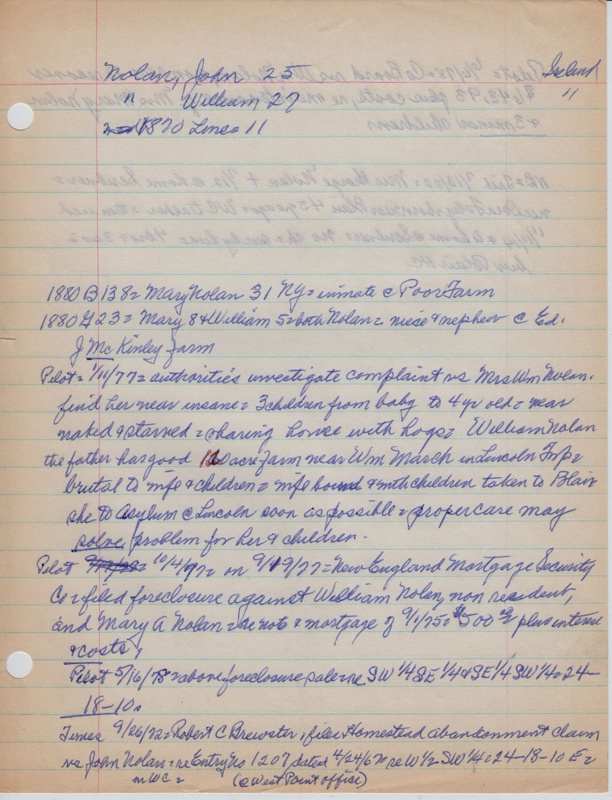 Nolan, John 25 Ireland
" William 27 "
1870 Line = 11
1880 B138 = Mary Nolan 31 NY = inmate @ Poor Farm
1880 G23 = Mary 8 & William 5 = both Nolan = niece & nephew @ Ed.
J McKinley farm
Pilot = 1/11/77 = authorities investigate complaint vs Mrs Wm Nolan.
find her near insane = 3 children from baby to 4 yr old = near
naked & starved = sharing house with hogs = William Nolan
the father has good 120 acre farm near Wm March in Lincoln Twp =
brutal to wife & children = wife bound & with children taken to Blair
she to Asylum @ Lincoln soon as possible = proper care may
solve problem for her & children.
Pilot 10/4/77 = on 9/19/77 = New England Mortgage Security
Co = filed foreclosure against William Nolan, non resident,
and Mary A Nolan = re note & mortgage of 9/1/75 = $500 plus interest
& costs,
Pilot 5/16/78 = above foreclosure sale re SW 1/4 SE 1/4 & SE 1/4 SW 1/4 = 24-
18-10.
Times 9/26/72 = Robert C Brewster, files Homestead abandonment claim
vs John Nolan = re Entry No 1207 dated 4/24/67 re W 1/2 SW 1/4 = 24-18-10 E =
in WC = (@ West Point office)